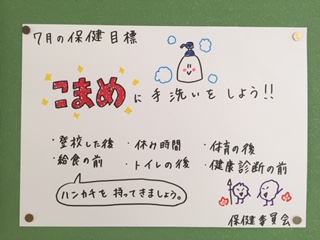 7月の保健目標
こまめに手洗いをしよう!!
・登校した後 ・休け時間 ・体育の後
・給食の前 ・トイレの後 ・健康診断の前
ハンカチを持ってきましょう。
保健委員会